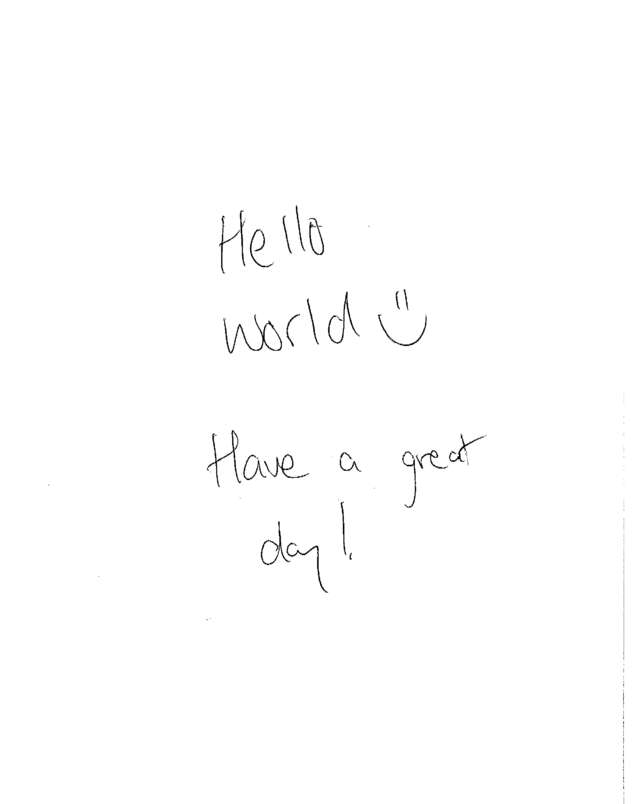 Hello
world
Have a great
day!